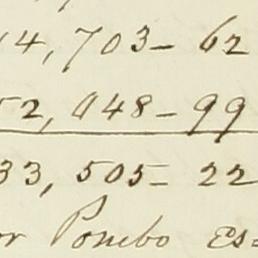 14,703- 62
52,048- 99
33,505= 22
or Pombo Es=